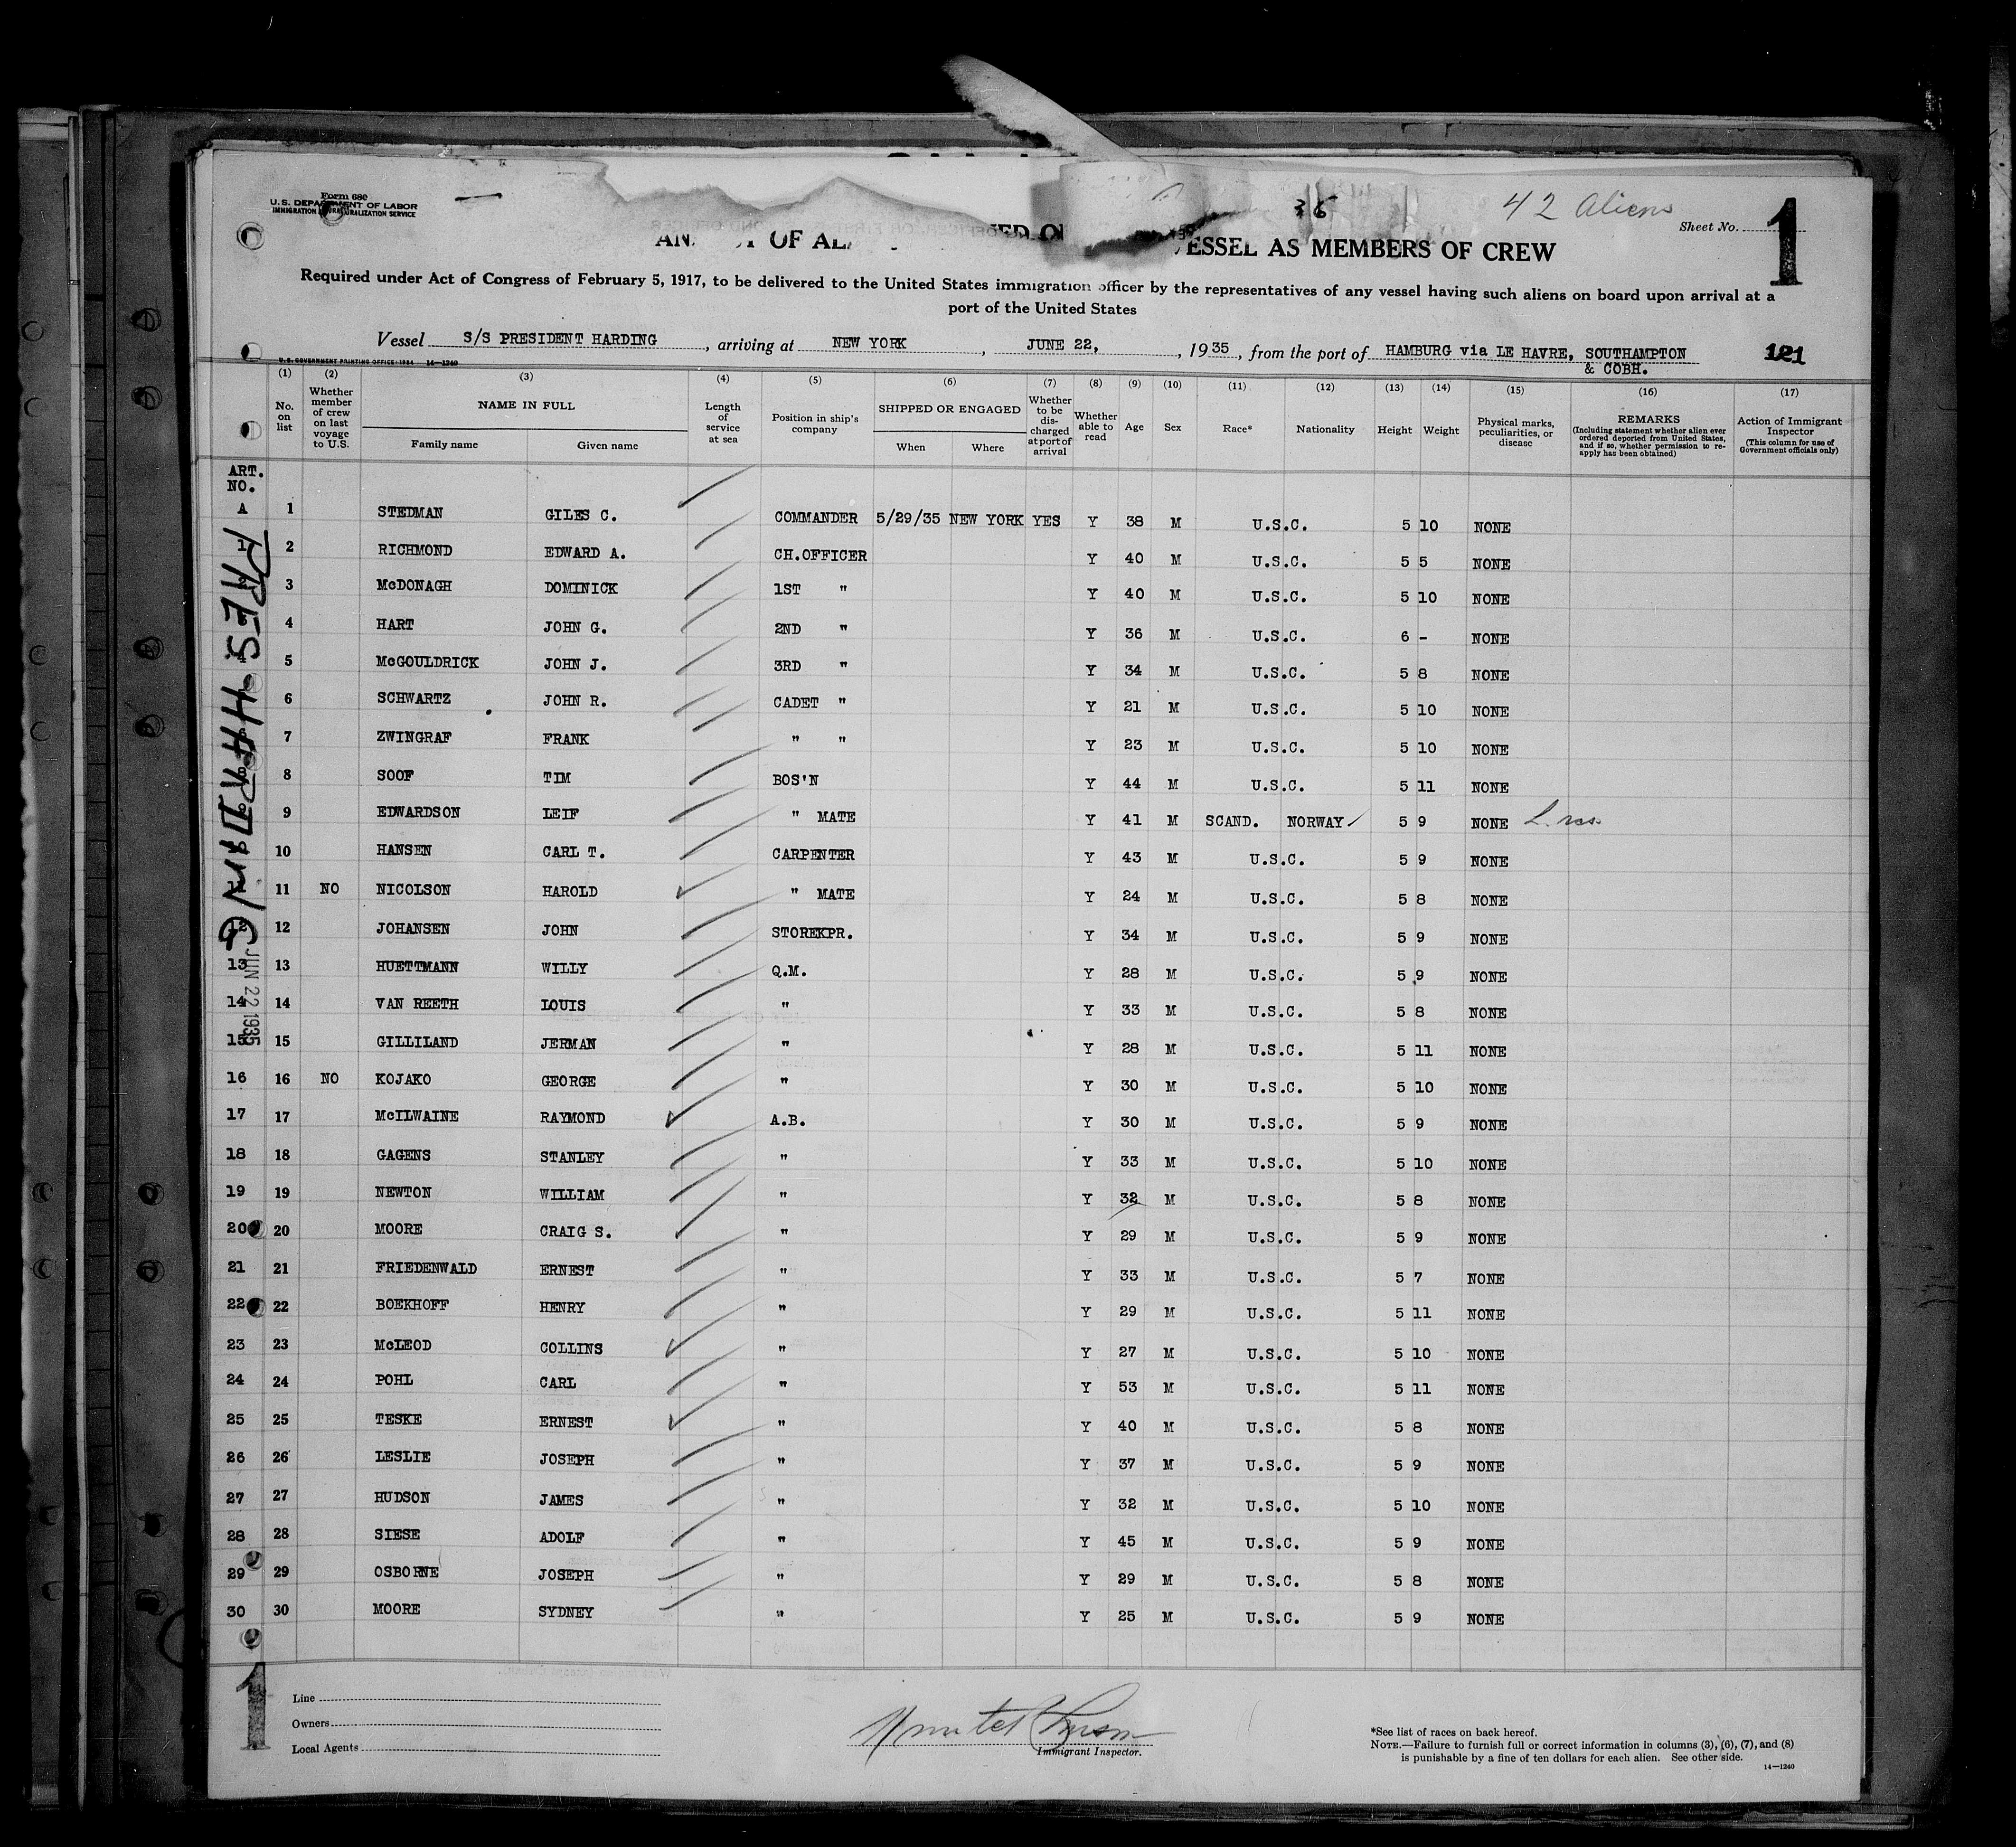 Form 680
U.S. DEPARTMENT OF LABOR
IMMIGRATION NATURALIZATION SERVICE
36
42 Aliens
Sheet No. 1
OF VESSEL AS MEMBERS OF CREW
Required under Act of Congress of February 5, 1917, to be delivered to the United States immigration officer by the representatives of any vessel having such aliens on board upon arrival at a
port of the United States
Vessel S/S PRESIDENT HARDING, arriving at NEW YORK, JUNE 22, 1935, from the port of HAMBURG via LE HAVRE, SOUTHAMPTON
& COBH.
121
U.S. GOVERNMENT PRINTING OFFICE: 1934 14—1240
(1) No. on list
(2) Whether member of crew on last voyage to U.S.
(3) NAME IN FULL Family name Given name
(4) Length of service at sea
(5) Position in ship's company
(6) SHIPPED OR ENGAGED When Where
(7) Whether to be discharged at port of arrival
(8) Whether able to read
(9) Age
(10) Sex
(11) Race*
(12) Nationality
(13) Height
(14) Weight
(15) Physical marks, peculiarities, or disease
(16) REMARKS (Including statement whether alien ever ordered deported from United States, and if so, whether permission to re-apply has been obtained)
(17) Action of Immigrant Inspector (This column for use of Government officials only)
ART.
NO.
A 1 STEDMAN GILES C. COMMANDER 5/29/35 NEW YORK YES Y 38 M U.S.C. 5 10 NONE
1 2 RICHMOND EDWARD A. CH.OFFICER Y 40 M U.S.C. 5 5 NONE
2 3 McDONAGH DOMINICK 1ST " Y 40 M U.S.C. 5 10 NONE
4 HART JOHN G. 2ND " Y 36 M U.S.C. 6 - NONE
5 McGOULDRICK JOHN J. 3RD " Y 34 M U.S.C. 5 8 NONE
6 SCHWARTZ JOHN R. CADET " Y 21 M U.S.C. 5 10 NONE
7 ZWINGRAF FRANK " " Y 23 M U.S.C. 5 10 NONE
8 SOOF TIM BOS'N Y 44 M U.S.C. 5 11 NONE
9 EDWARDSON LEIF " MATE Y 41 M SCAND. NORWAY 5 9 NONE
10 HANSEN CARL T. CARPENTER Y 43 M U.S.C. 5 9 NONE
11 NO NICOLSON HAROLD " MATE Y 24 M U.S.C. 5 8 NONE
12 JOHANSEN JOHN STOREKPR. Y 34 M U.S.C. 5 9 NONE
13 13 HUETTMANN WILLY Q.M. Y 28 M U.S.C. 5 9 NONE
14 14 VAN REETH LOUIS " Y 33 M U.S.C. 5 8 NONE
15 15 GILLILAND JERMAN " Y 28 M U.S.C. 5 11 NONE
16 16 NO KOJAKO GEORGE " Y 30 M U.S.C. 5 10 NONE
17 17 McILWAINE RAYMOND A.B. Y 30 M U.S.C. 5 9 NONE
18 18 GAGENS STANLEY " Y 33 M U.S.C. 5 10 NONE
19 19 NEWTON WILLIAM " Y 32 M U.S.C. 5 8 NONE
20 20 MOORE CRAIG S. " Y 29 M U.S.C. 5 9 NONE
21 21 FRIEDENWALD ERNEST " Y 33 M U.S.C. 5 7 NONE
22 22 BOEKHOFF HENRY " Y 29 M U.S.C. 5 11 NONE
23 23 McLEOD COLLINS " Y 27 M U.S.C. 5 10 NONE
24 24 POHL CARL " Y 53 M U.S.C. 5 11 NONE
25 25 TESKE ERNEST " Y 40 M U.S.C. 5 8 NONE
26 26 LESLIE JOSEPH " Y 37 M U.S.C. 5 9 NONE
27 27 HUDSON JAMES " Y 32 M U.S.C. 5 10 NONE
28 28 SIESE ADOLF " Y 45 M U.S.C. 5 9 NONE
29 29 OSBORNE JOSEPH " Y 29 M U.S.C. 5 8 NONE
30 30 MOORE SYDNEY " Y 25 M U.S.C. 5 9 NONE
PRES HARDING
JUN 22 1935
1
Line
Owners
Local Agents
Immigrant Inspector.
*See list of races on back hereof.
NOTE.—Failure to furnish full or correct information in columns (3), (6), (7), and (8)
is punishable by a fine of ten dollars for each alien. See other side.
14—1240